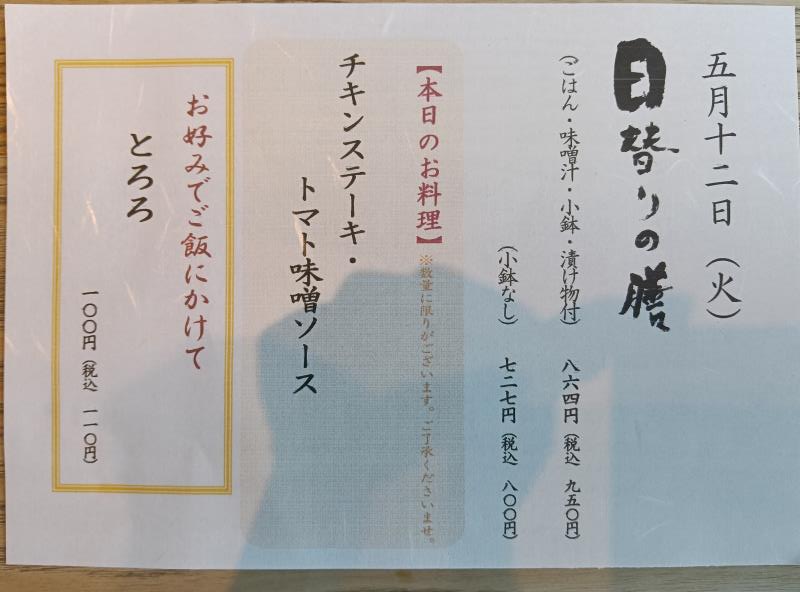 五月十二日（火）
日替りの膳
（ごはん・味噌汁・小鉢・漬け物付） 八六四円（税込 九五〇円）
（小鉢なし） 七二七円（税込 八〇〇円）
【本日のお料理】※数量に限りがございます。ご了承くださいませ。
チキンステーキ・
トマト味噌ソース
お好みでご飯にかけて
とろろ
一〇〇円（税込 一一〇円）